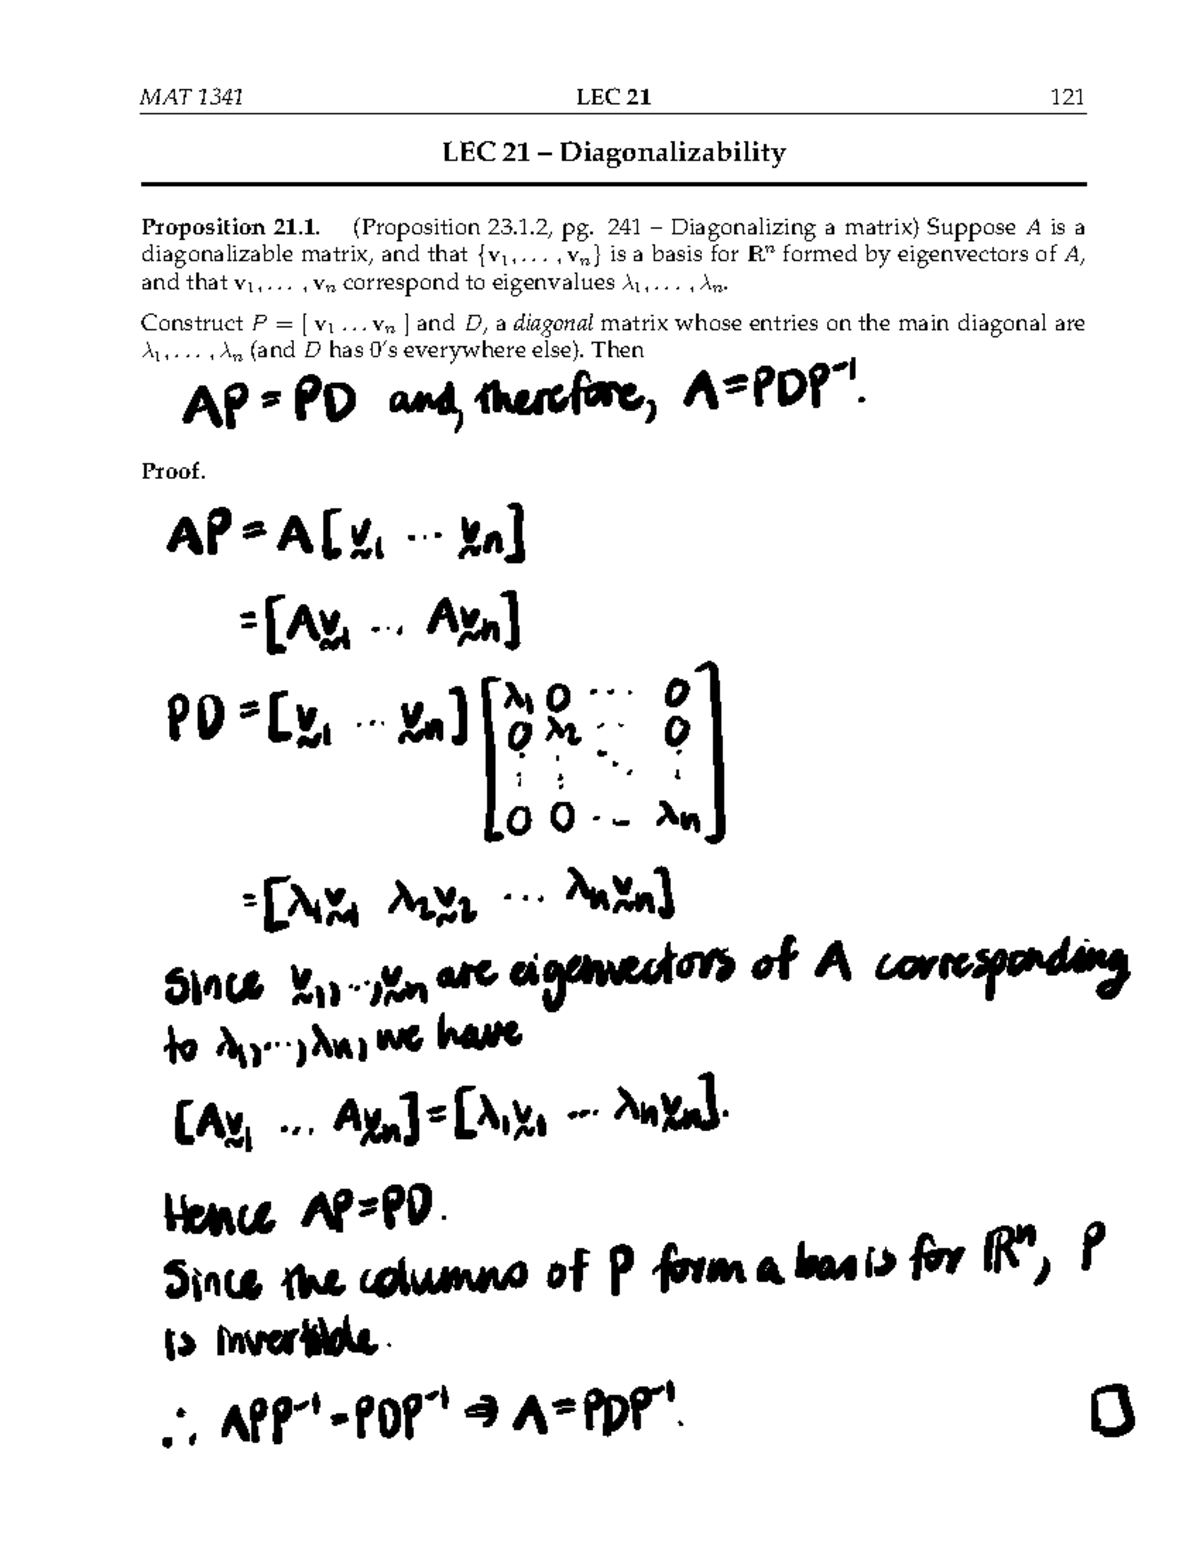 MAT 1341 LEC 21 121
LEC 21 – Diagonalizability
Proposition 21.1. (Proposition 23.1.2, pg. 241 – Diagonalizing a matrix) Suppose A is a
diagonalizable matrix, and that {v₁, . . . , vₙ} is a basis for ℝⁿ formed by eigenvectors of A,
and that v₁, . . . , vₙ correspond to eigenvalues λ₁, . . . , λₙ.
Construct P = [ v₁ . . . vₙ ] and D, a diagonal matrix whose entries on the main diagonal are
λ₁, . . . , λₙ (and D has 0's everywhere else). Then
AP = PD and, therefore, A = PDP⁻¹.
Proof.
AP = A[v₁ ... vₙ]
= [Av₁ ... Avₙ]
PD = [v₁ ... vₙ] [λ₁ 0 ... 0
0 λ₂ ... 0
⋮ ⋮ ⋱ ⋮
0 0 ... λₙ]
= [λ₁v₁ λ₂v₂ ... λₙvₙ]
Since v₁, ..., vₙ are eigenvectors of A corresponding
to λ₁, ..., λₙ, we have
[Av₁ ... Avₙ] = [λ₁v₁ ... λₙvₙ].
Hence AP = PD.
Since the columns of P form a basis for ℝⁿ, P
is invertible.
∴ APP⁻¹ = PDP⁻¹ ⇒ A = PDP⁻¹. □